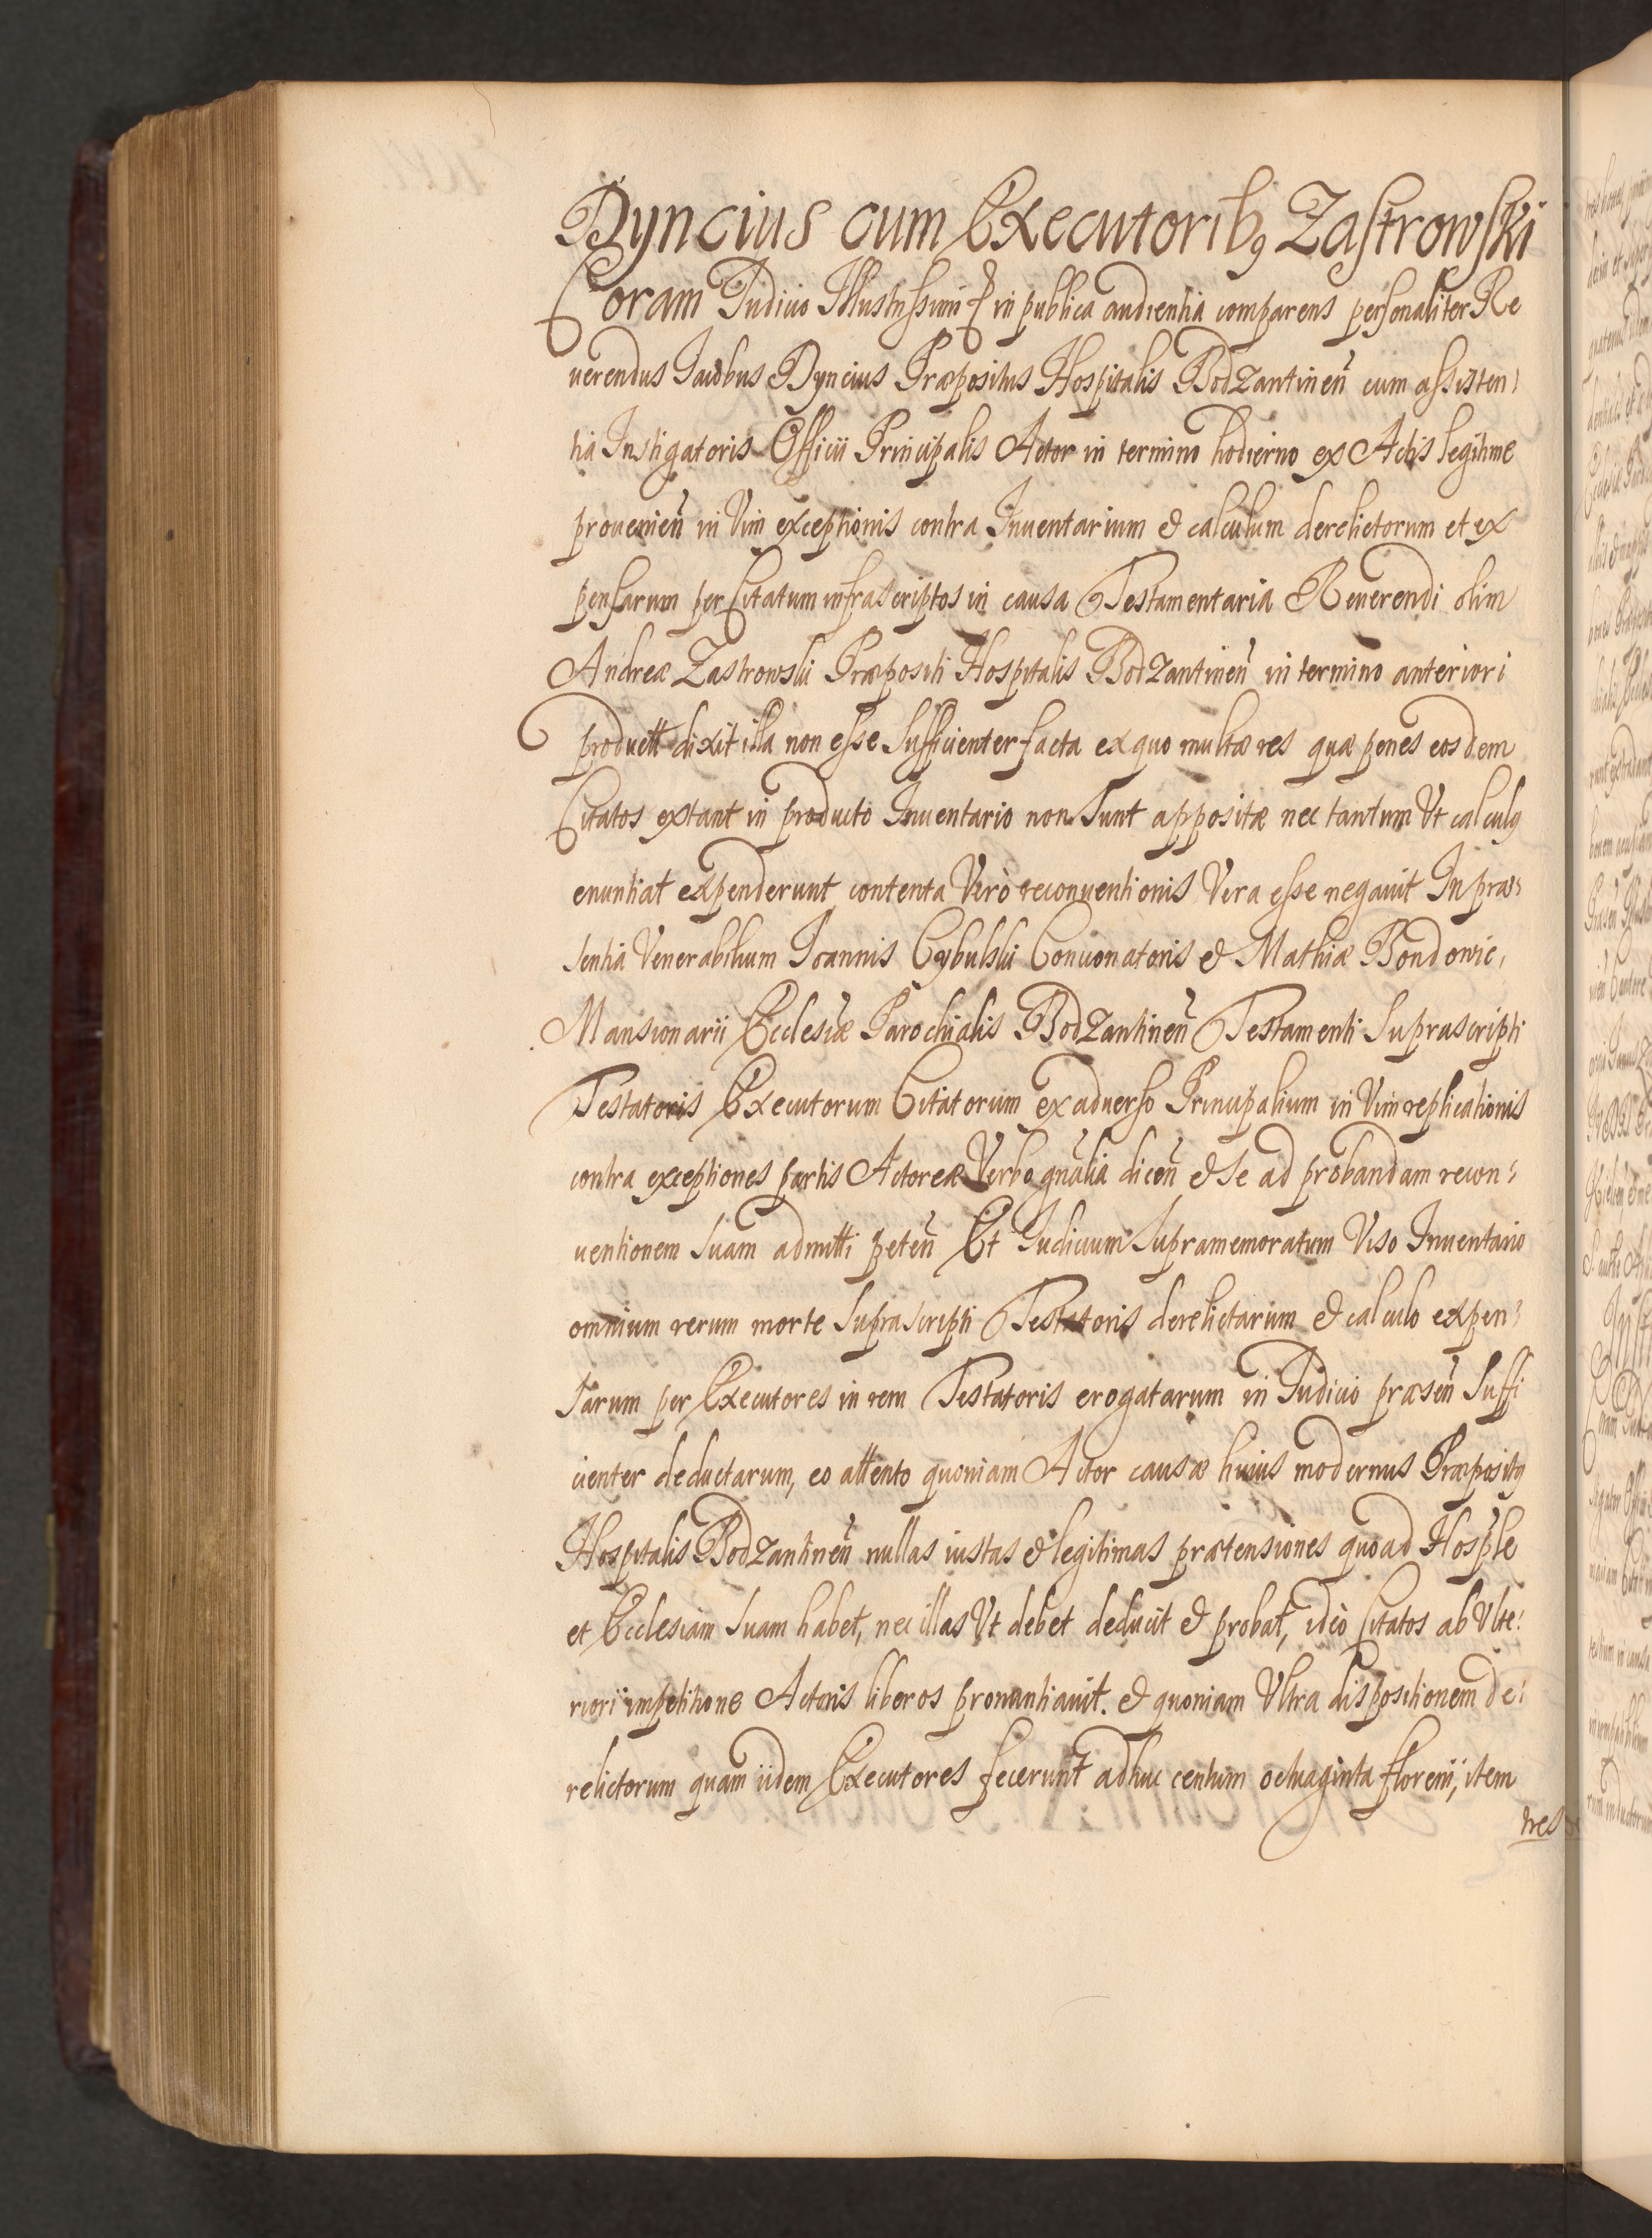 Dyncius cum Executorib9 Zastrowski
Coram Judicio Illustrissimi & in publica audientia comparens personaliter Re
uerendus Jacobus Dyncius Præpositus Hospitalis Bodzantineñ cum assisten:
tia Instigatoris Officii Principalis Actor in termino hodierno ex Actis legitime
proueninen̄ in Vim exceptionis contra Inuentarium & calculum derelictorum et ex
pensarum per Citatum infrascriptos in causa Testamentaria Reuerendi olim
Andreæ Zastrowski Præpositi Hospitalis Bodzantineñ in termino anteriori
product dixit illa non esse sufficienter facta ex quo multæ res quæ penes eosdem
Citatos extant in producto Inuentario non sunt appositæ nec tantum Vt calculq
enuntiat expenderunt contenta Verò reconuentionis Vera esse negauit In præ:
sentia Venerabilium Joannis Cybulski Concionatoris & Mathiæ Bondowic,
Mansionarii Ecclesiæ Parochialis Bodzantineñ Testamenti suprascripti
Testatoris Executorum Citatorum ex aduerso Principalium in Vim replicationis
contra exceptiones partis Actoreæ Verbo gnalia diceñ & se ad probandam recon:
uentionem suam admitti peteñ Et Judicium supramemoratum Viso Inuentario
omnium rerum morte suprascripti Testatoris derelictarum & calculo expen:
sarum per Executores in rem Testatoris erogatarum in Judicio præseñ suffi
cienter deductarum, eo attento quoniam Actor causæ huius modernus Præpositq
Hospitalis Bodzantineñ nullas iustas & legitimas prætensiones quoad Hosple
et Ecclesiam suam habet, nec illas Vt debet deducit & probat, ideò Citatos ab Vlte:
riori impetitione Actoris liberos pronuntiauit. & quoniam Vltra dispositionem de:
relictorum quam iidem Executores fecerunt adhuc centum octuaginta floreni, item
tres